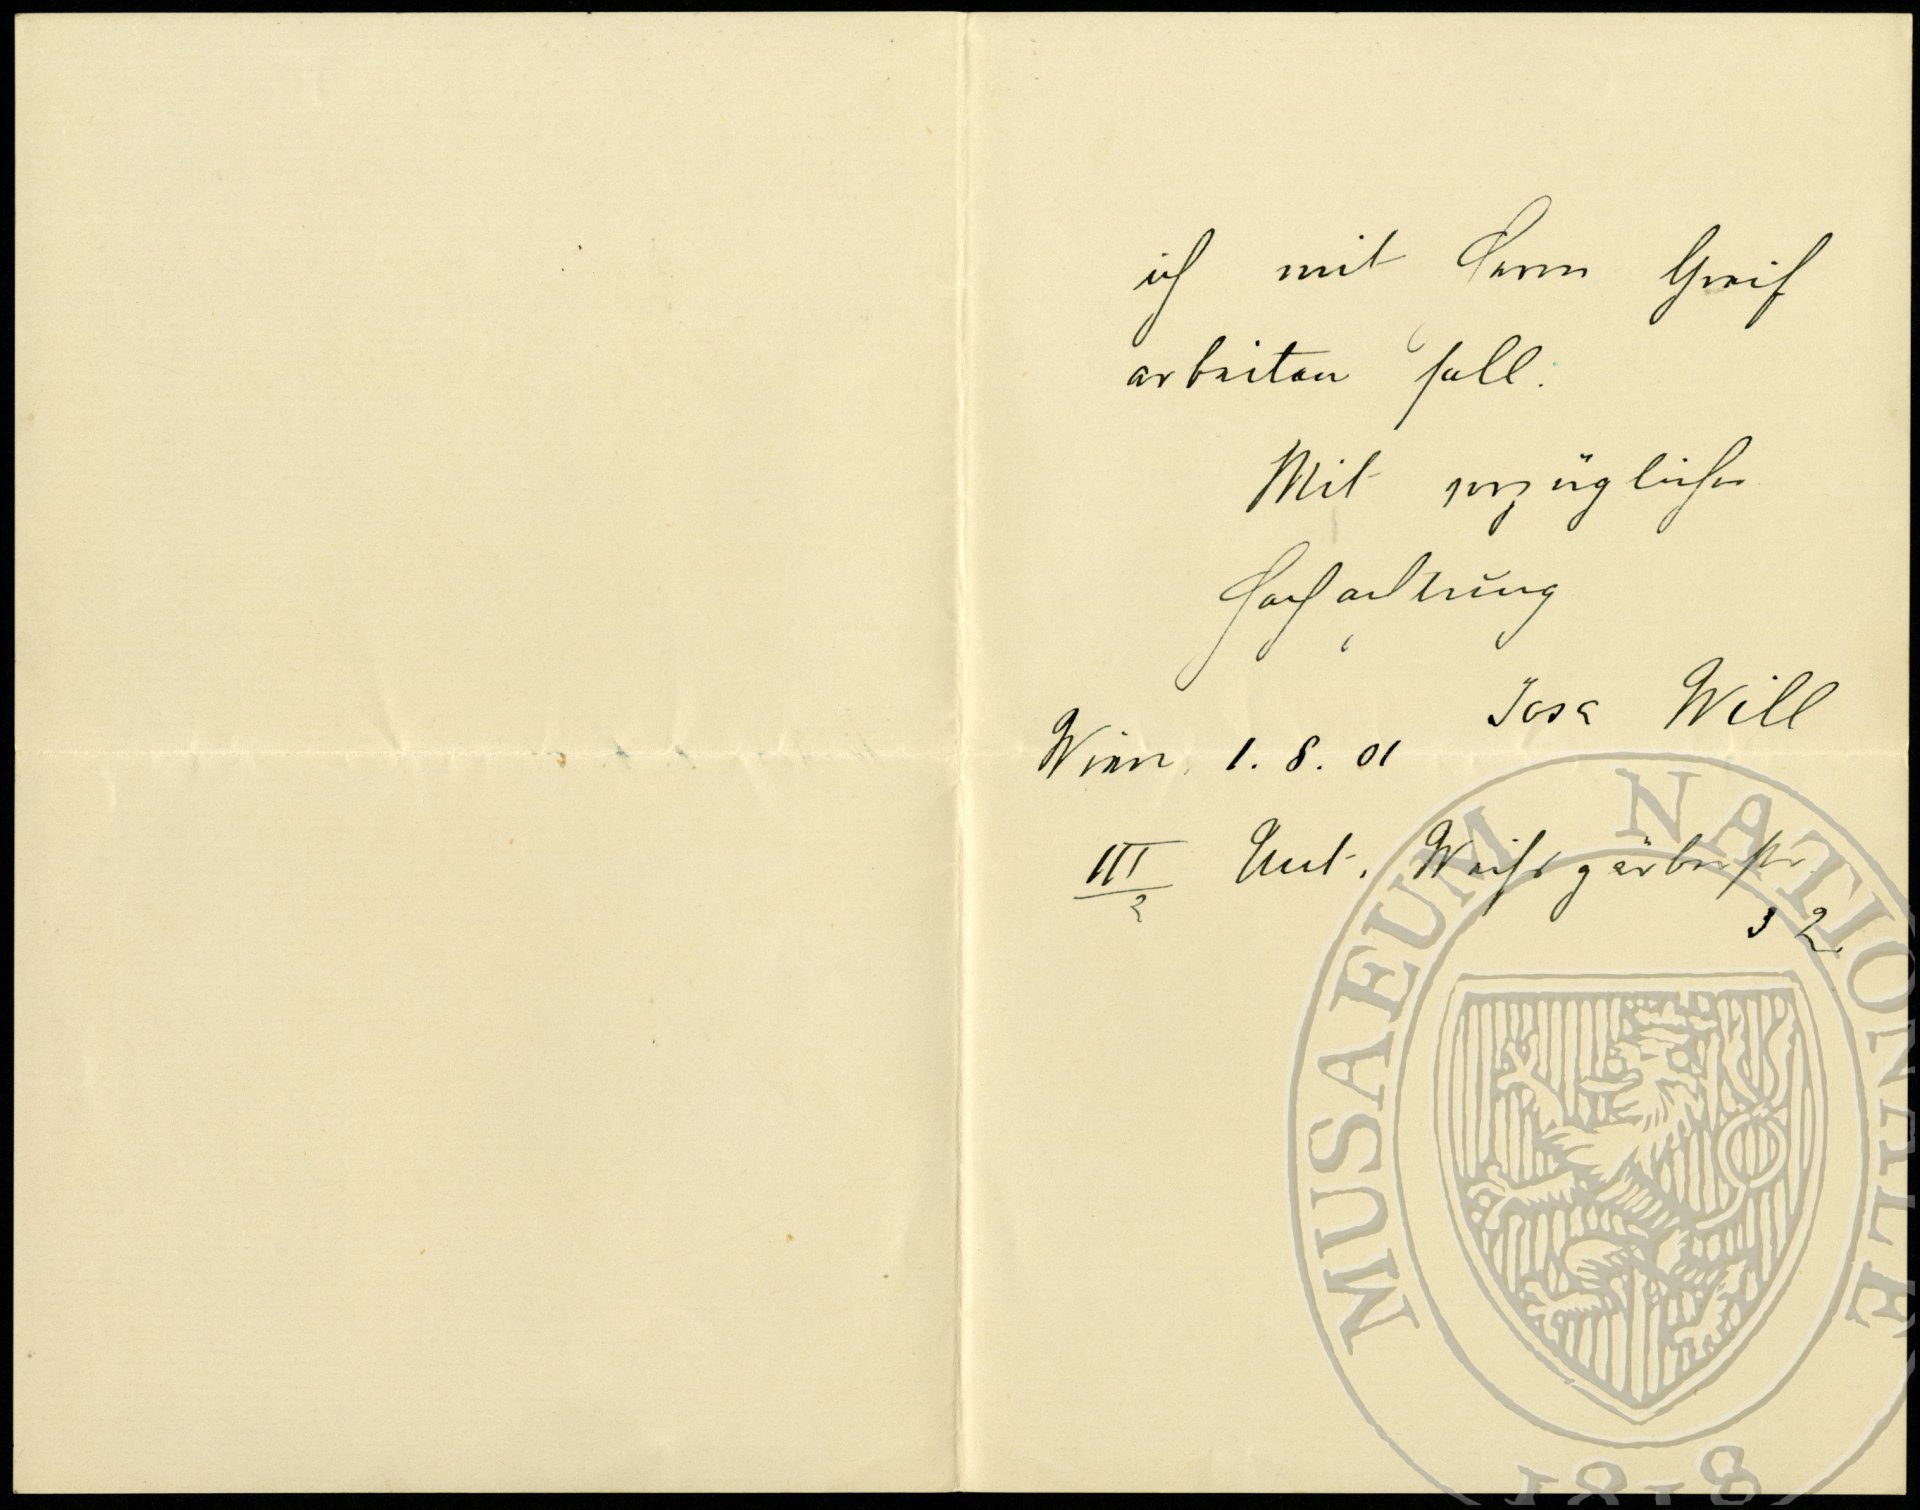 ich mit Herrn Greif
arbeiten soll.
Mit vorzüglicher
Hochachtung
Josa Will
Wien, 1. 8. 01
III/2 Unt. Weißgärberstr.
32.
MUSAEUM NATIONALE
1818